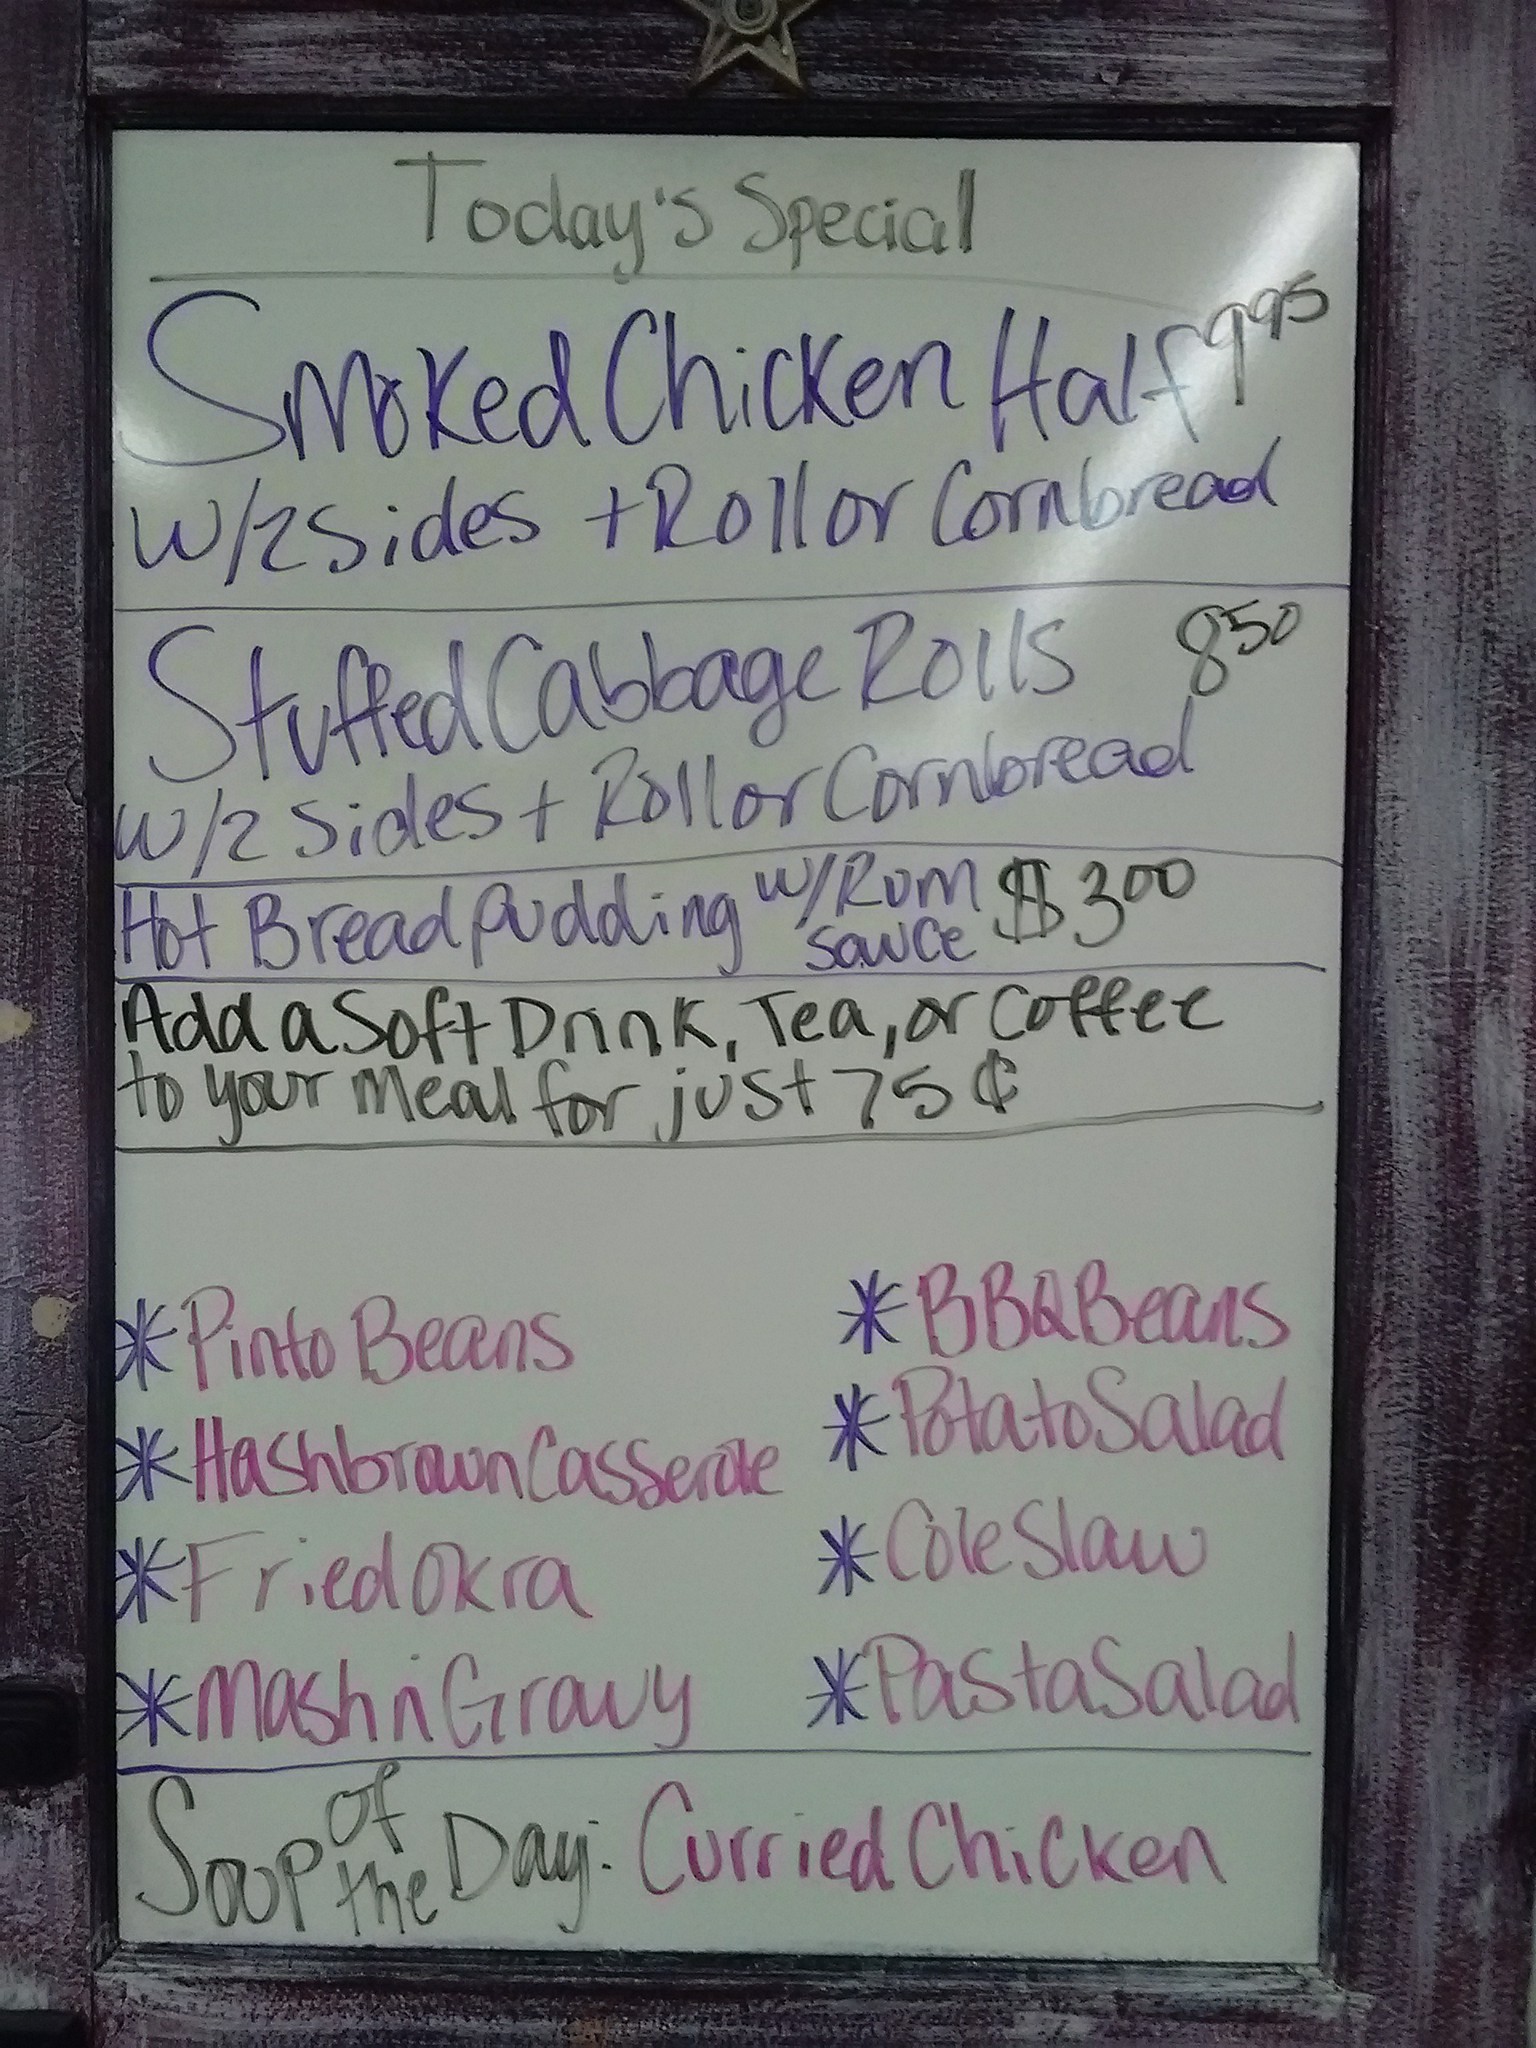 Today's Special
Smoked Chicken Half 9 95
w/2 sides + Roll or Cornbread
Stuffed Cabbage Rolls 8 50
w/2 sides + Roll or Cornbread
Hot Bread pudding w/Rum sauce $3 00
Add a Soft Drink, Tea, or Coffee
to your meal for just 75¢
* Pinto Beans
* Hashbrown Casserole
* Fried Okra
* Mash n Gravy
* BBQ Beans
* Potato Salad
* Cole Slaw
* Pasta Salad
Soup of the Day: Curried Chicken